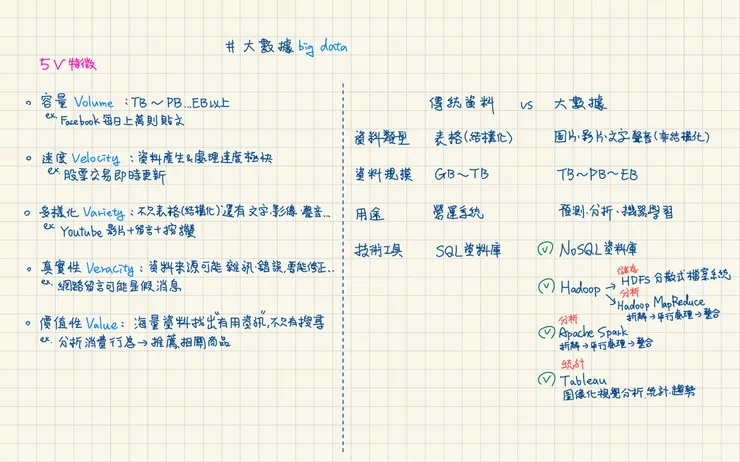 # 大數據 big data
5V 特徵
容量 Volume：TB～PB…EB以上
ex Facebook 每日上萬則貼文
速度 Velocity：資料產生&處理速度極快
ex 股票交易即時更新
多樣化 Variety：不只表格(結構化)還有文字.影像.聲音…
ex Youtube 影片+留言+按讚
真實性 Veracity：資料來源可能雜訊.錯誤.要能修正…
ex. 網路留言可能是假消息
價值性 Value：海量資料找出"有用資訊",不只有搜尋
ex. 分析消費行為→推薦相關商品
傳統資料 vs 大數據
資料類型 表格(結構化) 圖片.影片.文字.聲音(非結構化)
資料規模 GB～TB TB～PB～EB
用途 營運系統 預測.分析.機器學習
技術工具 SQL資料庫 NoSQL資料庫
儲存
Hadoop → HDFS 分散式檔案系統
分析
Hadoop MapReduce
拆解→平行處理→整合
分析
Apache Spark
拆解→平行處理→整合
統計
Tableau
圖像化視覺分析.統計.趨勢